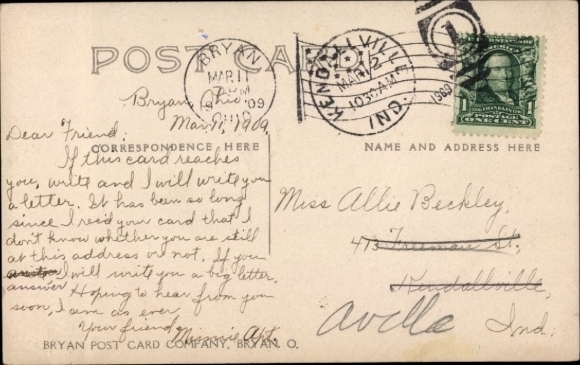 POST CA
BRYAN
MAR 11
PM
09
OHIO
KENDALLVILLE
MAR 12
1030AM
IND.
1909
1
U.S. POSTAGE
1 1
POSTAGE
ONE CENT
Bryan, Ohio,
Mar. 11, 1909.
Dear Friend:
CORRESPONDENCE HERE
If this card reaches
you, write and I will write you
a letter. It has been so long
since I rec'd your card that I
don't know whether you are still
at this address or not. If you
answer I will write you a big letter.
Hoping to hear from you
soon, I am as ever,
Your friend,
Minnie
NAME AND ADDRESS HERE
Miss Allie Beckley,
413 Freeman St.,
Kendallville,
Avilla Ind.
BRYAN POST CARD COMPANY, BRYAN, O.